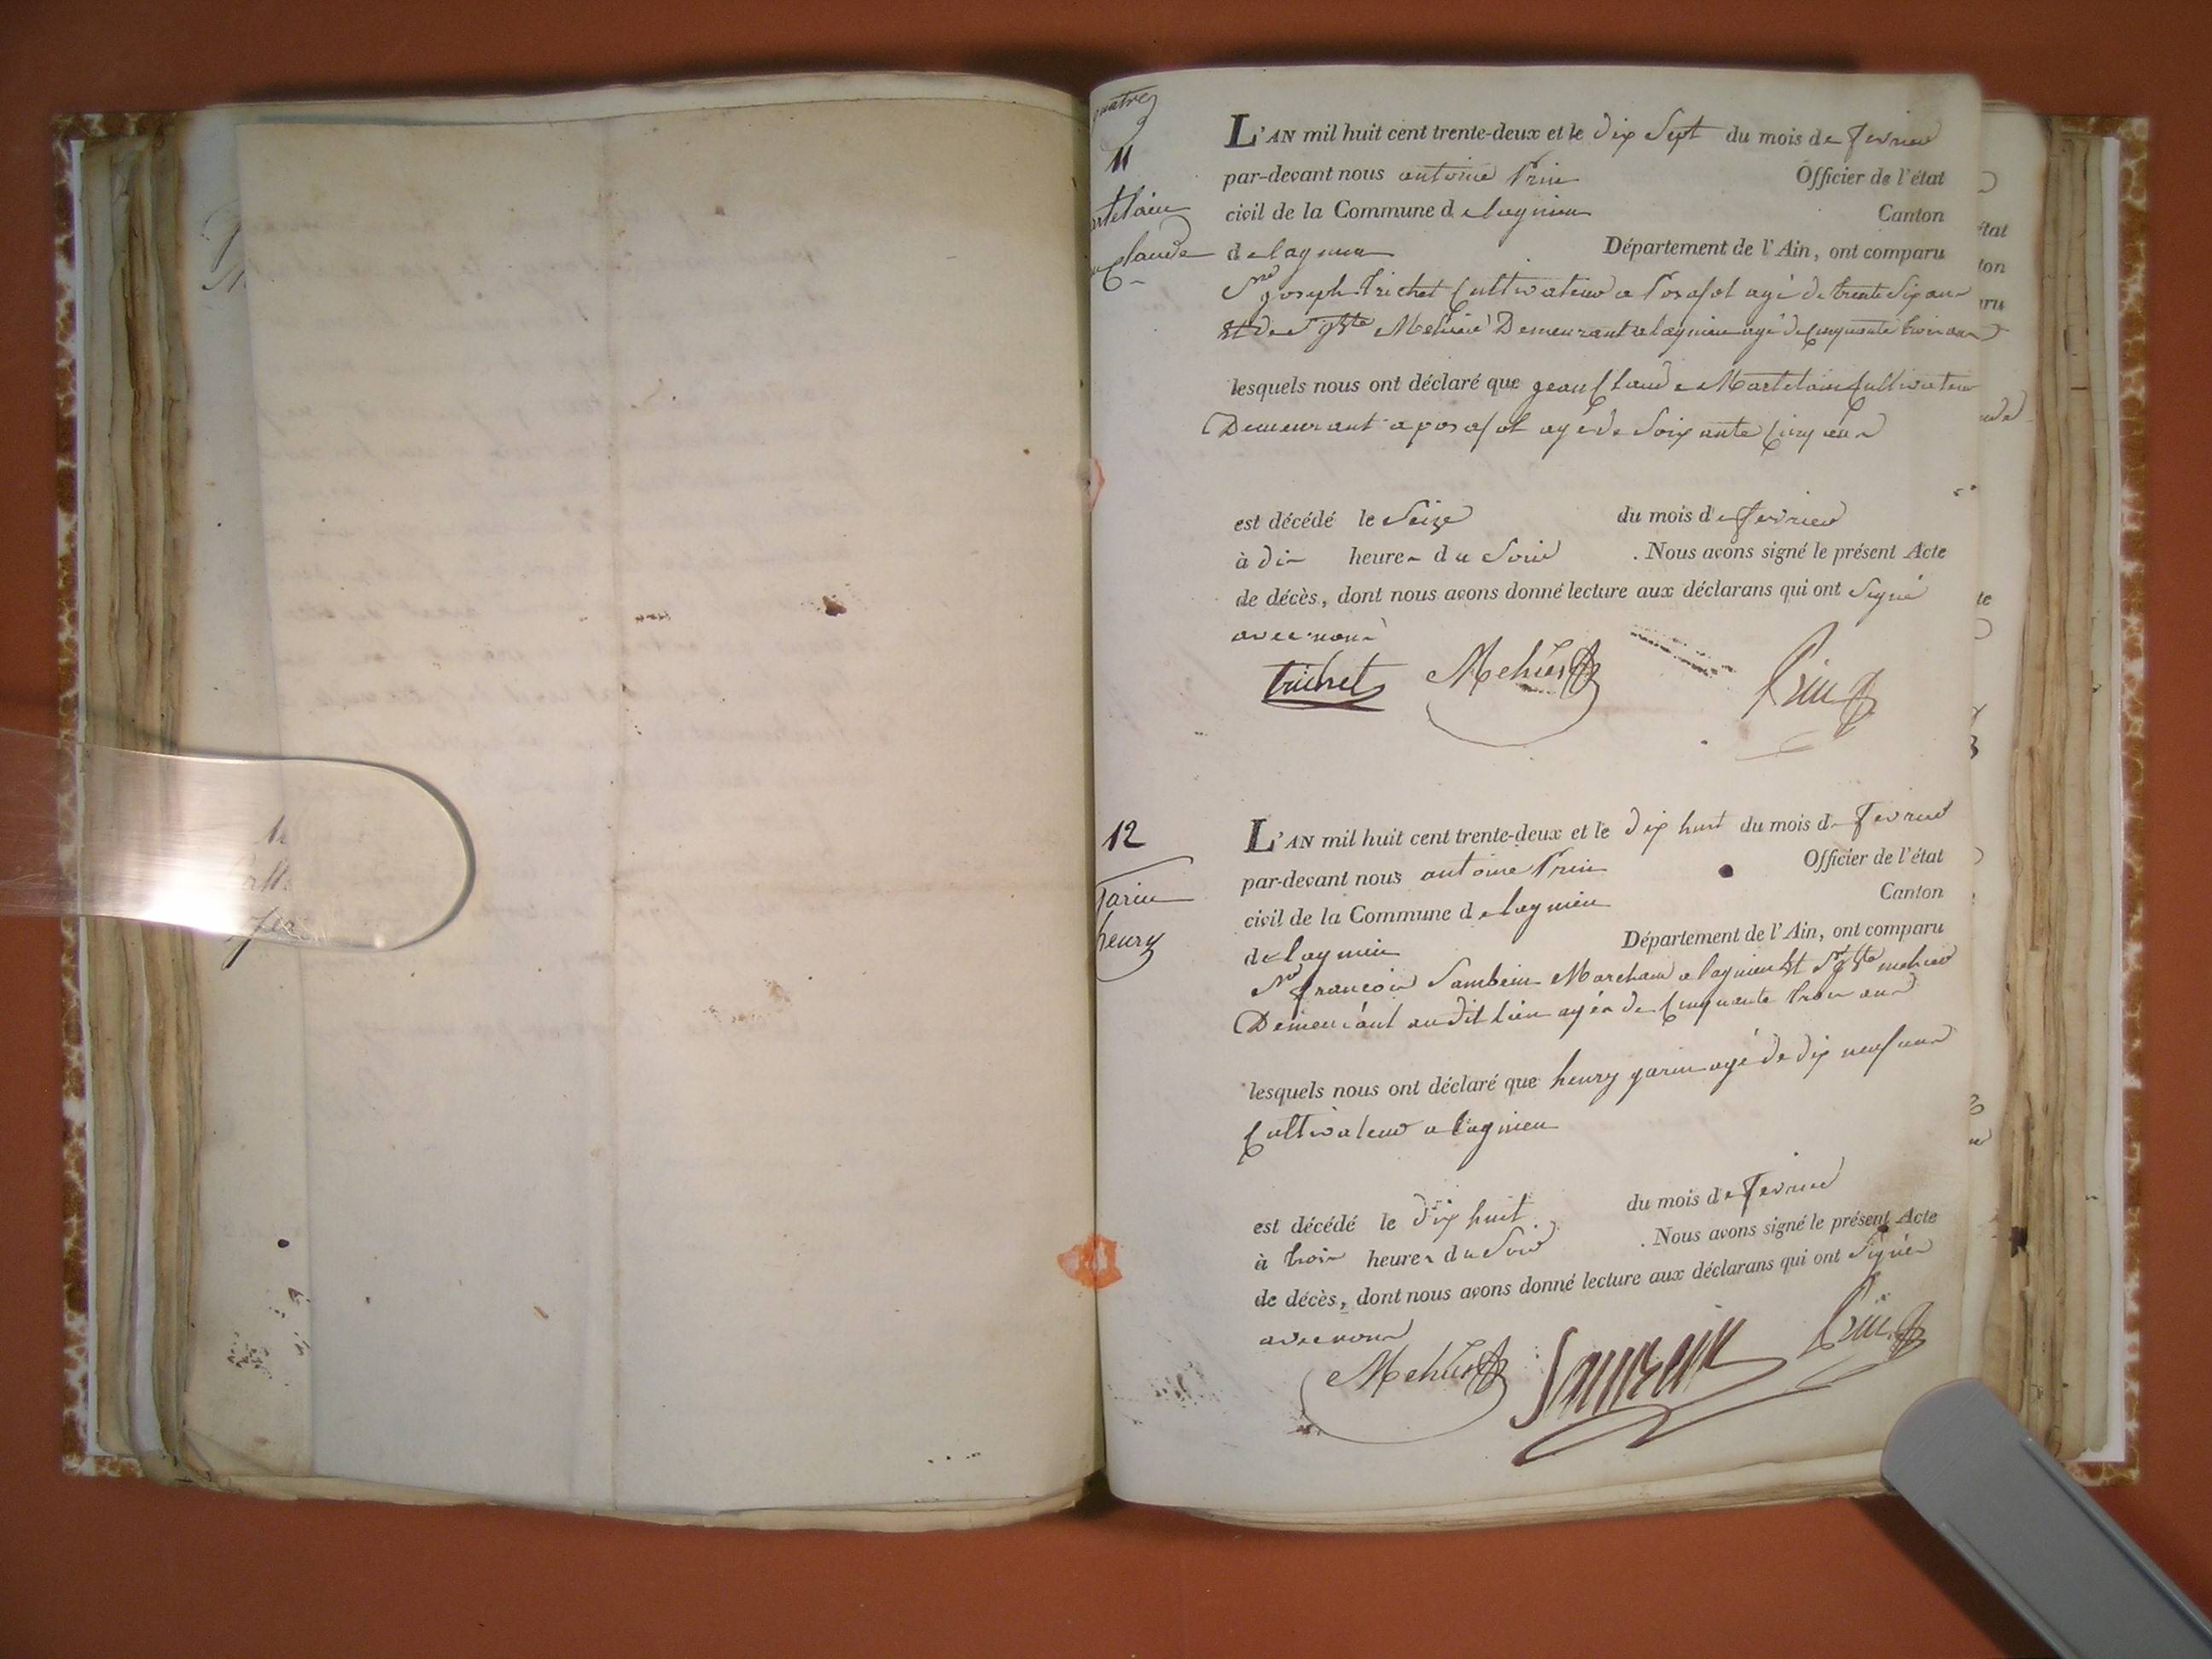 quatre
11
artelain
claude
L'AN mil huit cent trente-deux et le dix Sept du mois de fevrier
par-devant nous antoine Prin Officier de l'état
civil de la Commune de lagnieu Canton
de lagnieu Département de l'Ain, ont comparu
joseph trichet Cultivateur a Posafol agé de trente Six ans
Et de Sr jBte Mehier Demeurant a lagnieu agé de Cinquante trois ans
lesquels nous ont déclaré que jean Claude Martelain Cultivateur
Demeurant a posafol agé de Soixante Cinq ans
est décédé le Seize du mois de fevrier
à dix heures du Soir . Nous avons signé le présent Acte
de décès, dont nous avons donné lecture aux déclarans qui ont Signé
avec nous
trichet Mehier Prin
12
garin
henry
L'AN mil huit cent trente-deux et le dix huit du mois de fevrier
par-devant nous antoine Prin Officier de l'état
civil de la Commune de lagnieu Canton
de lagnieu Département de l'Ain, ont comparu
Sr francois Sambein Marchand a lagnieu Et Sr jBte mehier
Demeurant au dit lieu agés de Cinquante trois ans
lesquels nous ont déclaré que henry garin agé de dix neuf ans
Cultivateur a lagnieu
est décédé le dix huit du mois de fevrier
à trois heures du Soir . Nous avons signé le présent Acte
de décès, dont nous avons donné lecture aux déclarans qui ont Signés
avec nous
Mehier Sambein Prin